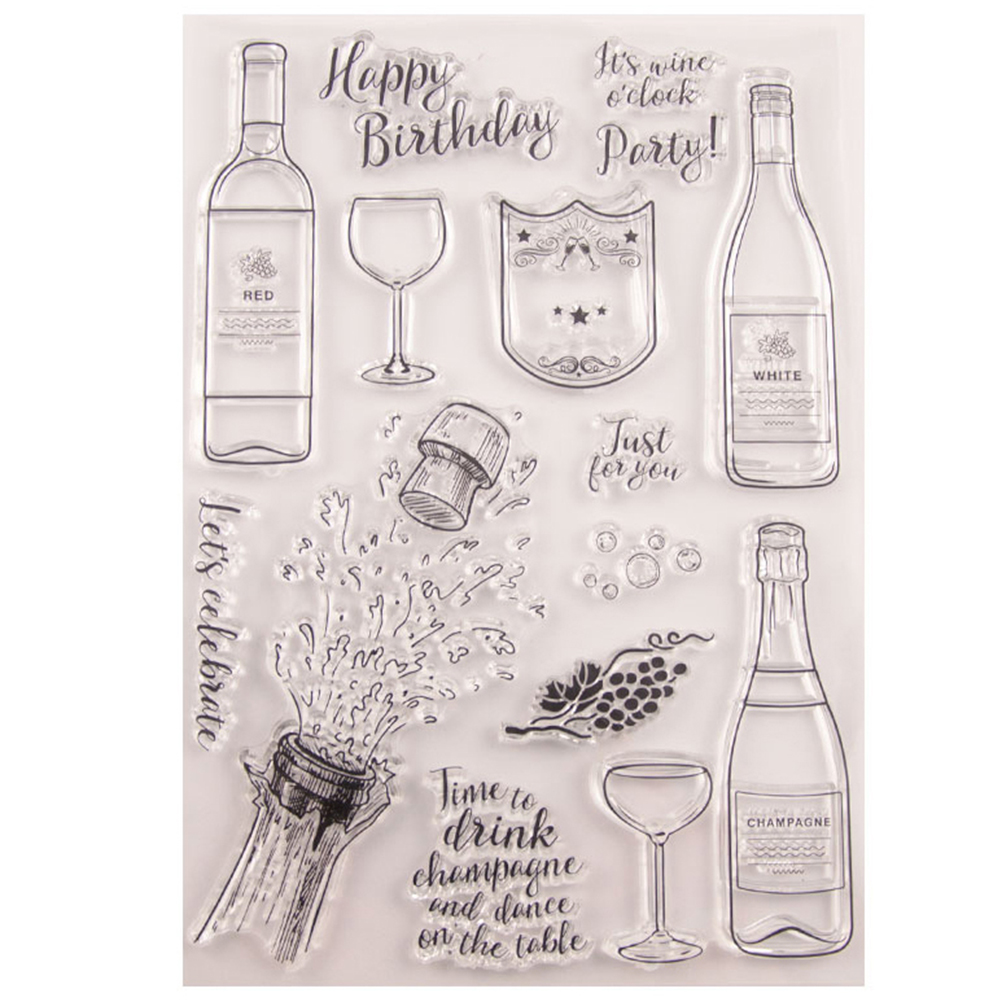 Happy
Birthday
It's wine
o'clock
Party!
RED
WHITE
Just
for you
Let's celebrate
Time to
drink
champagne
and dance
on the table
CHAMPAGNE